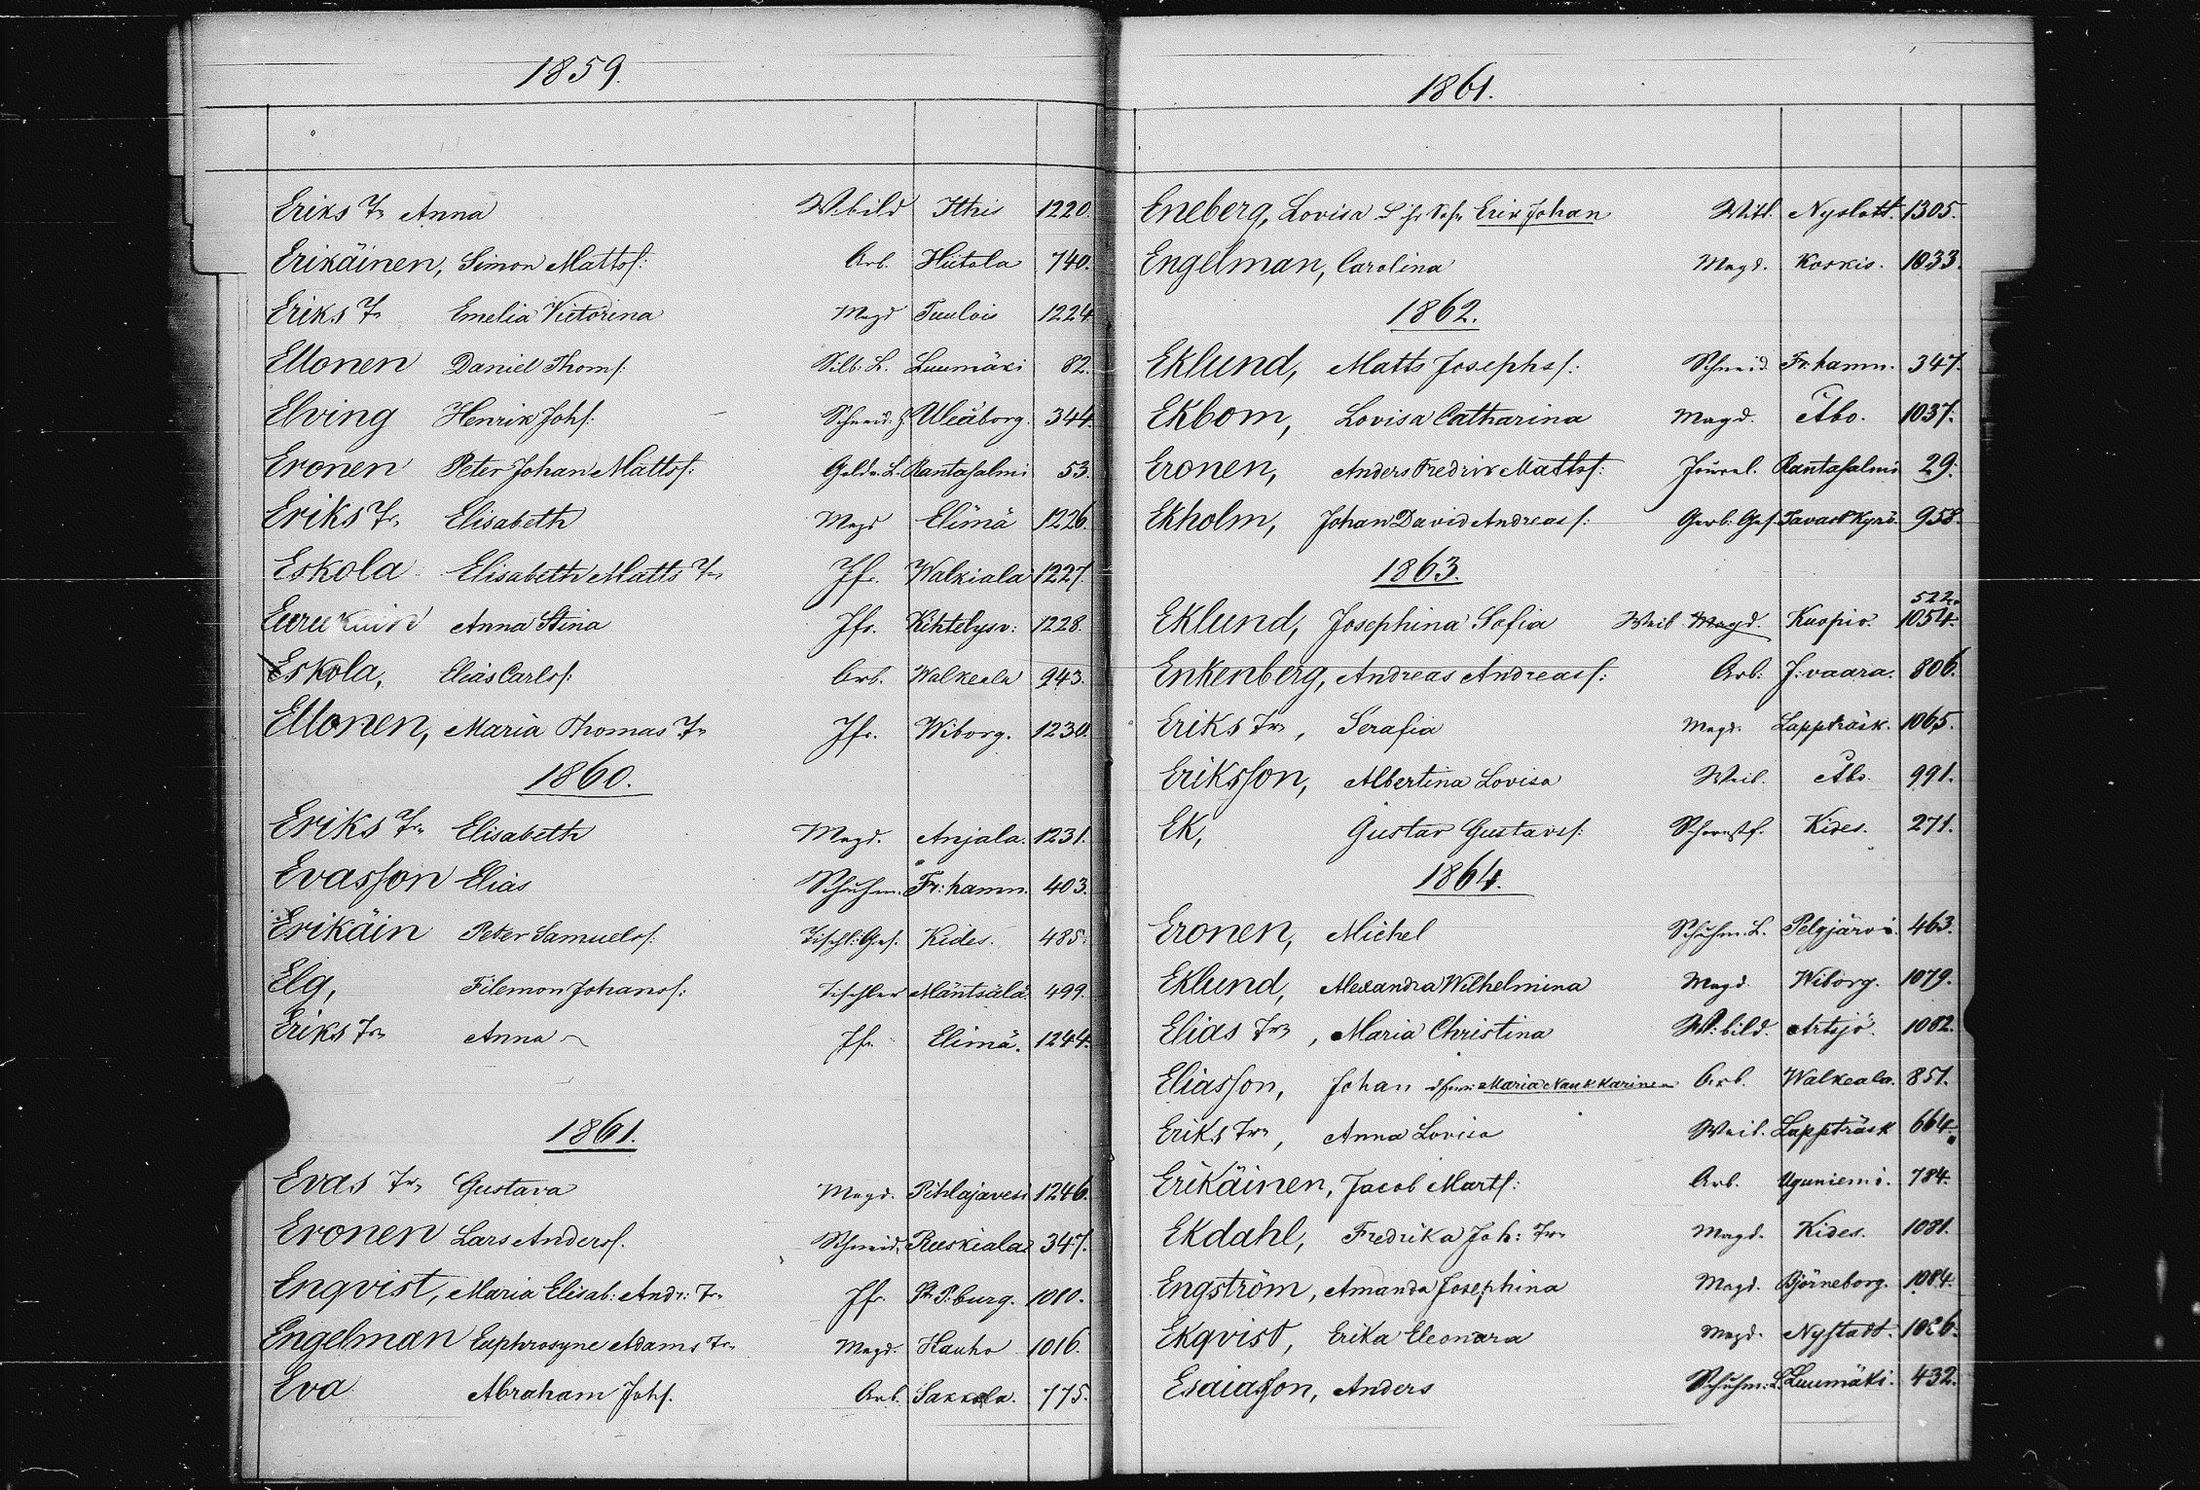 1859.
Eriks Tr Anna W.bild Itkis 1220.
Erikäinen, Simon Mattsf: Arb. Hiitola 740.
Eriks Tr Emelia Victorina Magd Tuulois 1224
Ellonen Daniel Thomsf: Silb: L. Luumäki 82.
Elving Henrik Johsf: Schneid. G. Uleåborg. 344.
Eronen Peter Johan Mattsf: Golds. L. Rantasalmi 53.
Eriks Tr. Elisabeth Magd Elimä 1226.
Eskola Elisabeth Matts Tr Jfr. Walkiala 1227.
Anna Stina Jfr. Kihtelysv: 1228.
Eskola, Elias Carlsf: Arb. Walkeala 943.
Ellonen, Maria Thomas Tr Jfr. Wiborg. 1230.
1860.
Eriks Tr. Elisabeth Magd. Anjala. 1231.
Evasson Elias Schuhm. Fr:hamn. 403.
Erikäin Peter Samuelsf: Tischl:Ges. Kides. 485.
Elg, Filemon Johansf: Tischler Mäntsälä. 499.
Eriks Tr Anna Jfr. Elimä. 1244.
1861.
Evas Tr. Gustava Magd. Pihlajavesi 1246.
Eronen Lars Andersf. Schneid. Ruskiala 347.
Enqvist, Maria Elisab: Andr: Tr Jfr. St. P:burg. 1010.
Engelman Euphrosyne Adams Tr. Magd. Hauho 1016.
Eva Abraham Johsf. Arb. Sakkola. 775.
1861.
Eneberg, Lovisa Erik Johan Witt. Nyslott. 1305.
Engelman, Carolina Magd. Koskis. 1033.
1862.
Eklund, Matts Josephsf: Schneid Fr:hamn. 347.
Ekbom, Lovisa Catharina Magd. Åbo. 1037.
Eronen, Anders Fredrik Mattsf: Juwel. Rantasalmi 29.
Ekholm, Johan David Andreasf: Gerb: Ges. Tavastkyrö. 958.
1863.
522.
Eklund, Josephina Sofia Weib Magd. Kuopio. 1054.
Enkenberg, Andreas Andreasf: Arb: J:vaara. 806.
Eriks Tr, Serafia Magd. Lappträsk. 1065.
Eriksson, Albertina Lovisa Weib. Åbo. 991.
Ek, Gustav Gustavsf: Schornstf. Kides. 271.
1864.
Eronen, Michel Schuhm. L. Pelgjärvi. 463.
Eklund, Alexandra Wilhelmina Magd. Wiborg. 1079.
Elias Tr, Maria Christina W:bild. Artsjö. 1082.
Eliasson, Johan Maria Naukkarinen Arb. Walkeala. 851.
Eriks Tr, Anna Lovisa Weib. Lappträsk 664.
Erikäinen, Jacob Martf: Arb. Uguniemi. 784.
Ekdahl, Fredrika Joh: Tr. Magd. Kides. 1081.
Engström, Amanda Josephina Magd. Björneborg. 1084.
Ekqvist, Erika Eleonora Magd. Nystadt. 1086.
Esaiasson, Anders Schuhm: L. Luumäki. 432.